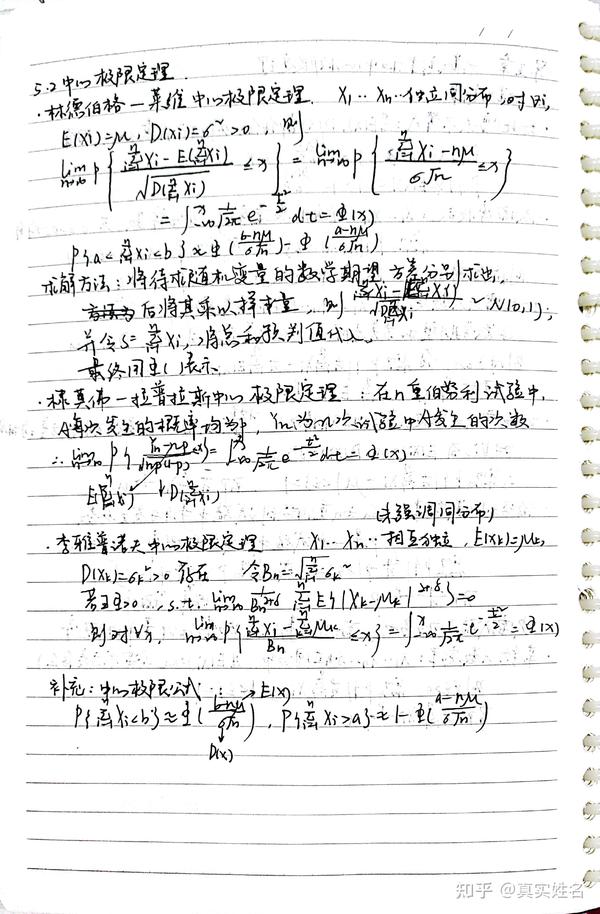 5.2 中心极限定理.
·林德伯格—莱维 中心极限定理. X₁…Xₙ…独立同分布,对∀i,
E(Xi)=μ, D(Xi)=σ²>0, 则
lim n→∞ P{ (Σ Xi - E(Σ Xi)) / √D(Σ Xi) ≤x } = lim n→∞ P{ (Σ Xi - nμ) / σ√n ≤x }
= ∫-∞^x 1/√2π e^(-t²/2) dt = Φ(x)
P{a<Σ Xi<b}≈Φ((b-nμ)/σ√n) - Φ((a-nμ)/σ√n)
求解方法:将待求随机变量的数学期望,方差分别求出,
后将其乘以样本量,则 (Σ Xi - E(Σ Xi)) / √D(Σ Xi) ~ N(0,1);
并令S=Σ Xi,将总和预判值代入,
最终用Φ( )表示.
·棣莫弗—拉普拉斯中心极限定理:在n重伯努利试验中,
A每次发生的概率均为p, Yn为n次试验中A发生的次数
∴ lim n→∞ P{ (Yn-np) / √np(1-p) ≤x } = ∫-∞^x 1/√2π e^(-t²/2) dt = Φ(x)
E(Σ Xi) D(Σ Xi)
(未强调同分布)
·李雅普诺夫中心极限定理 X₁…Xn…相互独立, E(Xk)=μk,
D(Xk)=σk²>0 存在 令Bn=√Σ σk²
若∃δ>0, s.t. lim n→∞ 1/Bn^(2+δ) Σ E{|Xk-μk|^(2+δ)}=0
则对∀x, lim n→∞ P{ (Σ Xi - Σ μk) / Bn ≤x } = ∫-∞^x 1/√2π e^(-t²/2) = Φ(x)
补充:中心极限公式: E(X)
P{Σ Xi<b}≈Φ((b-nμ)/σ√n), P{Σ Xi>a}≈1-Φ((a-nμ)/σ√n)
D(X)
知乎 @真实姓名